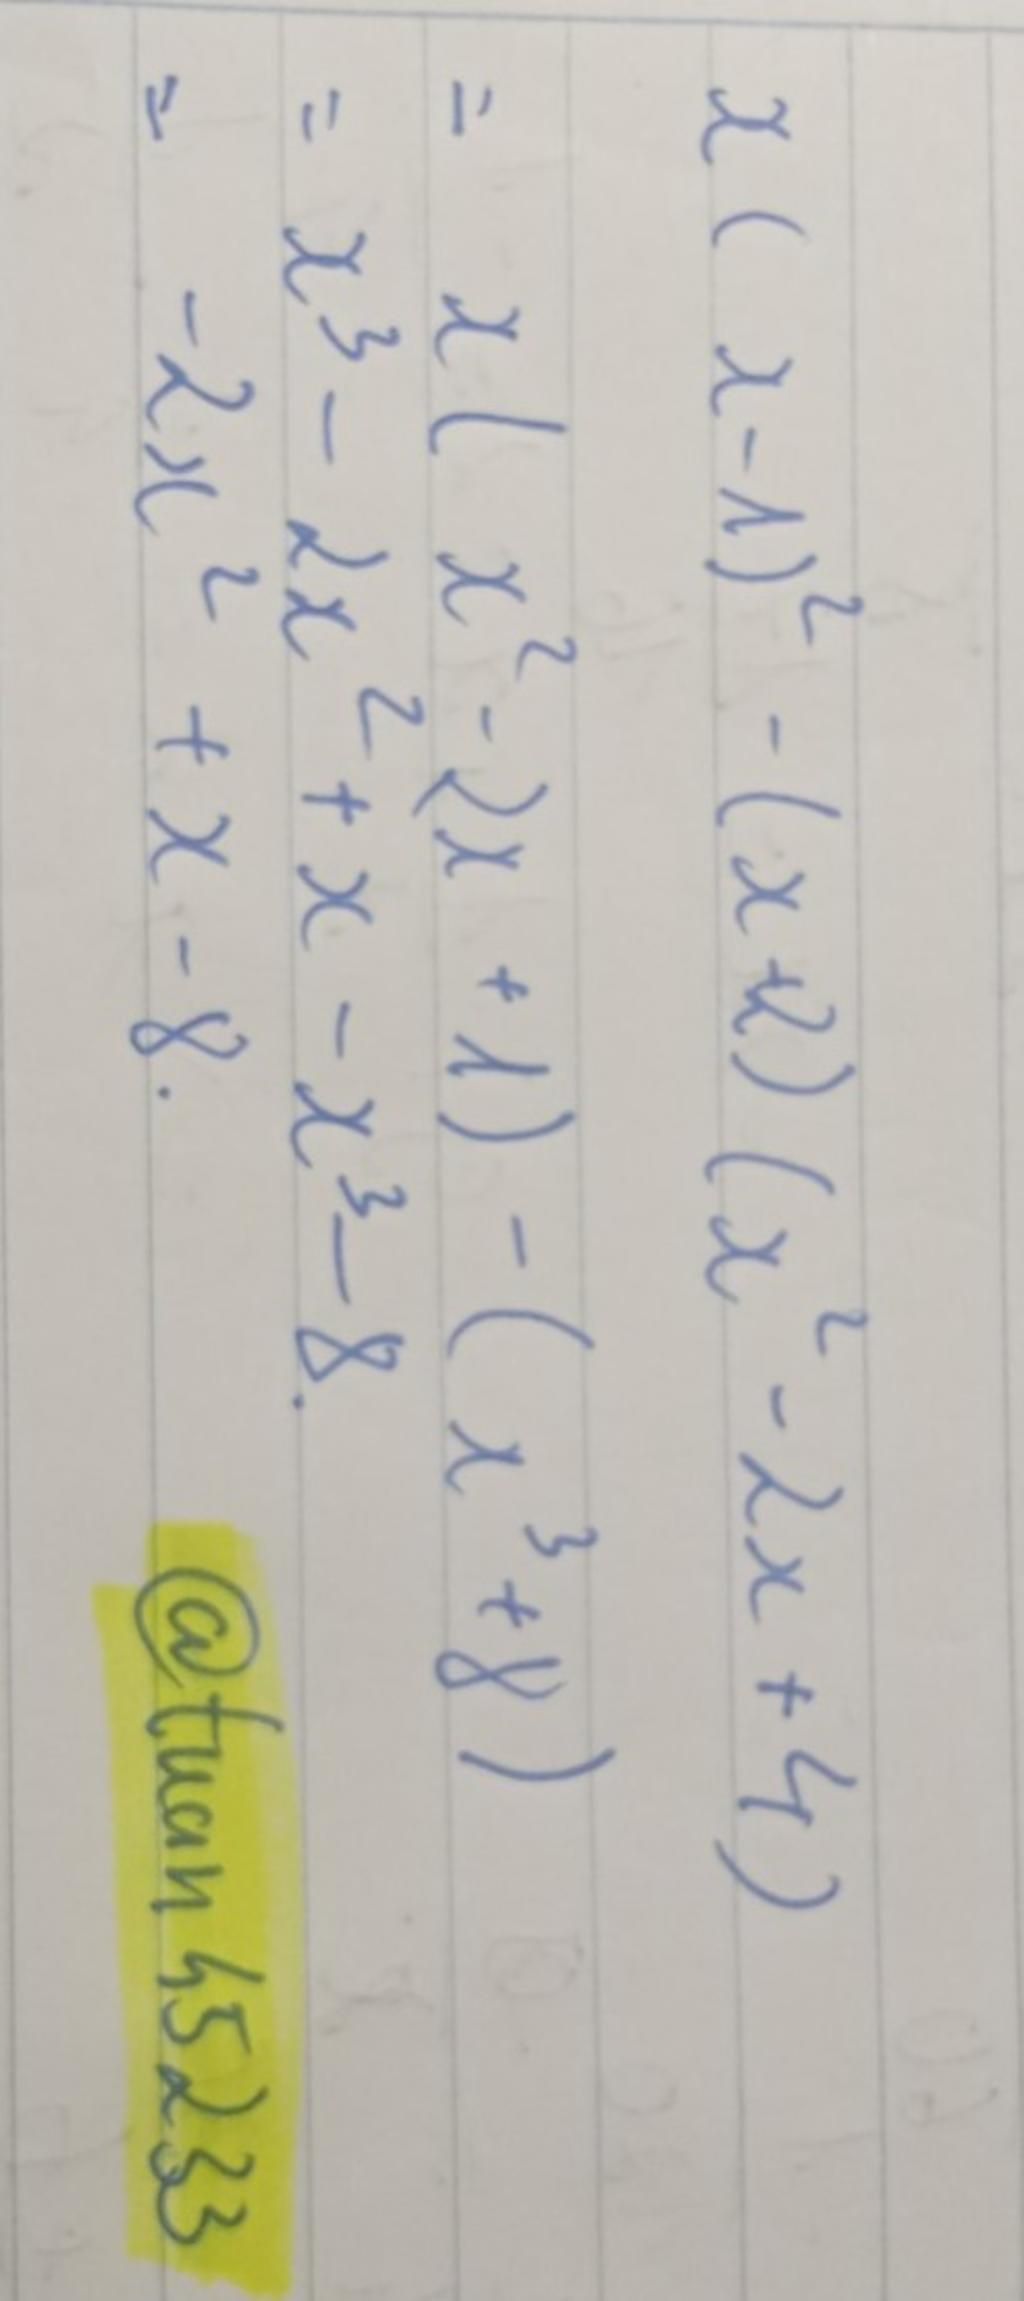 x(x-1)² - (x+2)(x² - 2x + 4)
= x(x² - 2x + 1) - (x³ + 8)
= x³ - 2x² + x - x³ - 8.
= -2x² + x - 8.
@tuan45233